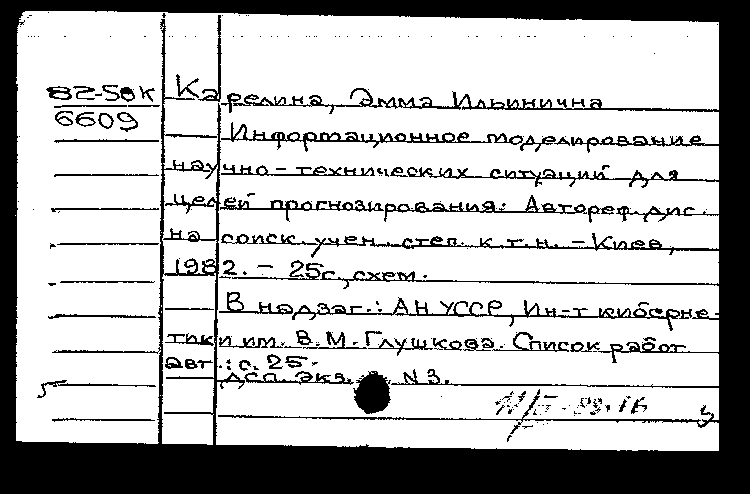 82-5вк Карелина, Эмма Ильинична
6609
Информационное моделирование
научно-технических ситуаций для
целей прогнозирования: Автореф. дис.
на соиск. учен. степ. к.т.н. - Киев,
1982. - 25с., схем.
В надзаг.: АН УССР, Ин-т киберне-
тики им. В.М. Глушкова. Список работ
авт.: с. 25.
Дсп. Экз. N3.